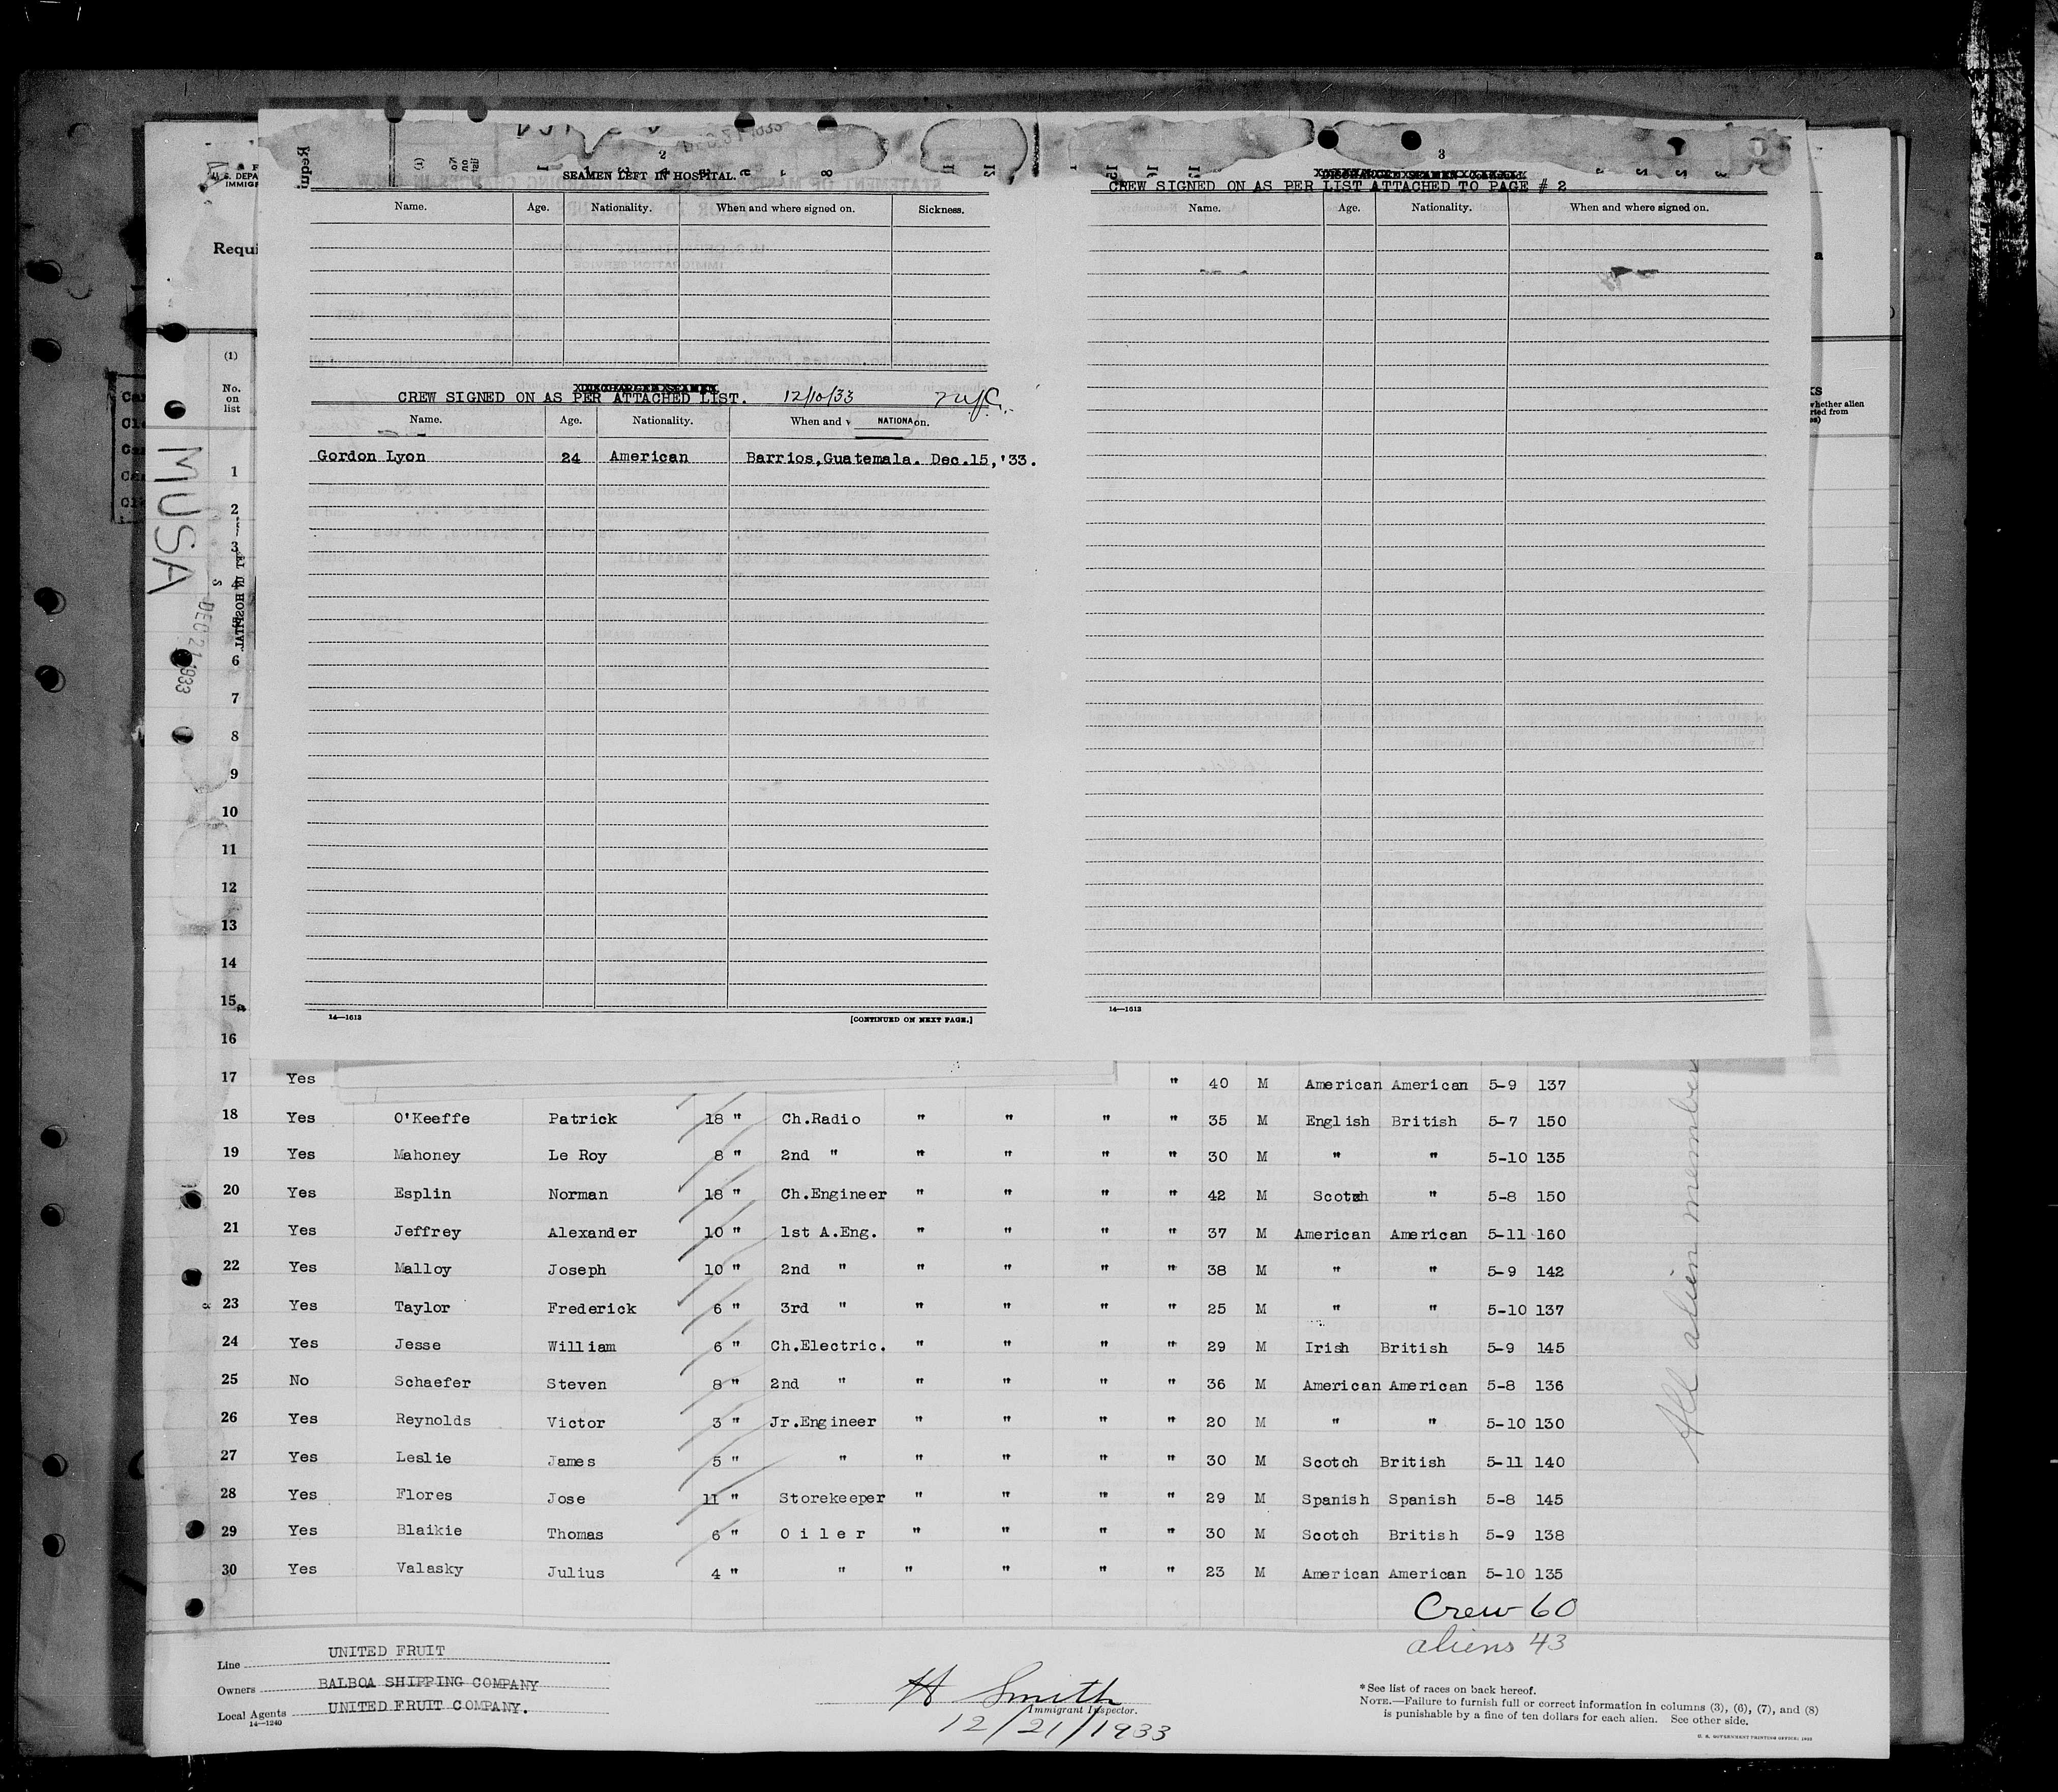 2
SEAMEN LEFT IN HOSPITAL.
Name. Age. Nationality. When and where signed on. Sickness.
CREW SIGNED ON AS PER ATTACHED LIST. 12/10/33
Name. Age. Nationality. When and NATIONA on.
Gordon Lyon 24 American Barrios,Guatemala. Dec.15,'33.
14—1613 [CONTINUED ON NEXT PAGE.]
3
CREW SIGNED ON AS PER LIST ATTACHED TO PAGE # 2
Name. Age. Nationality. When and where signed on.
14—1613
U. S. DEPA
IMMIG
Requi
(1)
No.
on
list
MUSA
DEC 21 1933
1
2
3
4
6
7
8
9
10
11
12
13
14
15
16
17 Yes " 40 M American American 5-9 137
18 Yes O'Keeffe Patrick 18 " Ch.Radio " " " " 35 M English British 5-7 150
19 Yes Mahoney Le Roy 8 " 2nd " " " " " 30 M " " 5-10 135
20 Yes Esplin Norman 18 " Ch.Engineer " " " " 42 M Scotch " 5-8 150
21 Yes Jeffrey Alexander 10 " 1st A.Eng. " " " " 37 M American American 5-11 160
22 Yes Malloy Joseph 10 " 2nd " " " " " 38 M " " 5-9 142
23 Yes Taylor Frederick 6 " 3rd " " " " " 25 M " " 5-10 137
24 Yes Jesse William 6 " Ch.Electric. " " " " 29 M Irish British 5-9 145
25 No Schaefer Steven 8 " 2nd " " " " " 36 M American American 5-8 136
26 Yes Reynolds Victor 3 " Jr.Engineer " " " " 20 M " " 5-10 130
27 Yes Leslie James 5 " " " " " " 30 M Scotch British 5-11 140
28 Yes Flores Jose 11 " Storekeeper " " " " 29 M Spanish Spanish 5-8 145
29 Yes Blaikie Thomas 6 " Oiler " " " " 30 M Scotch British 5-9 138
30 Yes Valasky Julius 4 " " " " " " 23 M American American 5-10 135
All alien members
Crew 60
aliens 43
Line UNITED FRUIT
Owners BALBOA SHIPPING COMPANY
Local Agents UNITED FRUIT COMPANY.
14—1240
H Smith
Immigrant Inspector.
12/21/1933
*See list of races on back hereof.
NOTE.—Failure to furnish full or correct information in columns (3), (6), (7), and (8)
is punishable by a fine of ten dollars for each alien. See other side.
U. S. GOVERNMENT PRINTING OFFICE: